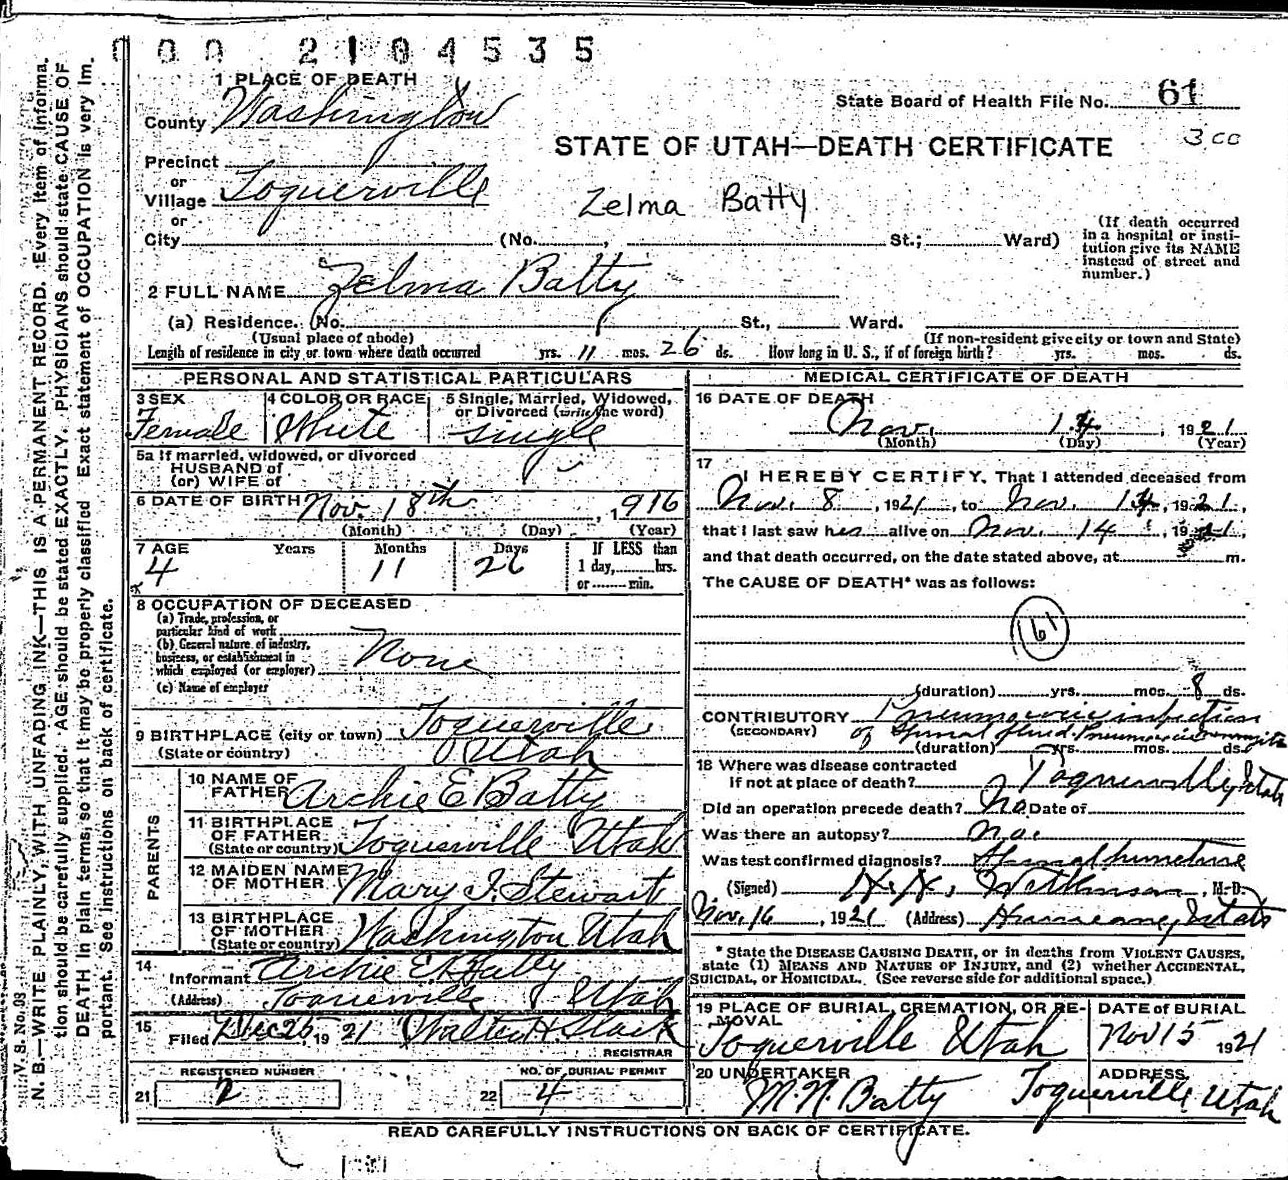 000 2104535
1 PLACE OF DEATH
County Washington
State Board of Health File No. 61
STATE OF UTAH—DEATH CERTIFICATE
3 cc
Precinct
or
Village Toquerville
Zelma Batty
or
City (No. , St.; Ward)
(If death occurred in a hospital or institution give its NAME instead of street and number.)
2 FULL NAME Zelma Batty
(a) Residence. (No. St., Ward.
(Usual place of abode) (If non-resident give city or town and State)
Length of residence in city or town where death occurred yrs. 11 mos. 26 ds. How long in U. S., if of foreign birth? yrs. mos. ds.
PERSONAL AND STATISTICAL PARTICULARS
3 SEX Female
4 COLOR OR RACE White
5 Single, Married, Widowed, or Divorced (write the word) Single
5a If married, widowed, or divorced
HUSBAND of
(or) WIFE of
6 DATE OF BIRTH Nov. 18th, 1916
(Month) (Day) (Year)
7 AGE Years Months Days If LESS than
4 11 26 1 day, hrs.
or min.
8 OCCUPATION OF DECEASED
(a) Trade, profession, or
particular kind of work
(b) General nature of industry,
business, or establishment in
which employed (or employer) None
(c) Name of employer
9 BIRTHPLACE (city or town) Toquerville
(State or country) Utah
PARENTS
10 NAME OF
FATHER Archie E Batty
11 BIRTHPLACE
OF FATHER
(State or country) Toquerville Utah
12 MAIDEN NAME
OF MOTHER Mary J. Stewart
13 BIRTHPLACE
OF MOTHER
(State or country) Washington Utah
14
Informant Archie E. Batty
(Address) Toquerville Utah
15
Filed Dec 25, 1921 Walter H. Slack
REGISTRAR
REGISTERED NUMBER
21 2
NO. OF BURIAL PERMIT
22 4
MEDICAL CERTIFICATE OF DEATH
16 DATE OF DEATH
Nov. 14, 1921
(Month) (Day) (Year)
17
I HEREBY CERTIFY, That I attended deceased from
Nov. 8, 1921, to Nov. 14, 1921,
that I last saw her alive on Nov. 14, 1921,
and that death occurred, on the date stated above, at m.
The CAUSE OF DEATH* was as follows:
(61)
(duration) yrs. mos. 8 ds.
CONTRIBUTORY Pneumococcic infection
(SECONDARY) of Spinal fluid.
(duration) yrs. mos. ds.
18 Where was disease contracted
if not at place of death? Toquerville, Utah
Did an operation precede death? No Date of
Was there an autopsy? no.
Was test confirmed diagnosis? Spinal puncture
(Signed) Wilkinson, M.D.
Nov. 16, 1921 (Address) Hurricane, Utah
* State the DISEASE CAUSING DEATH, or in deaths from VIOLENT CAUSES,
state (1) MEANS AND NATURE OF INJURY, and (2) whether ACCIDENTAL,
SUICIDAL, or HOMICIDAL. (See reverse side for additional space.)
19 PLACE OF BURIAL, CREMATION, OR RE-
MOVAL
Toquerville Utah
DATE of BURIAL
Nov 15 1921
20 UNDERTAKER
M. N. Batty
ADDRESS
Toquerville Utah
READ CAREFULLY INSTRUCTIONS ON BACK OF CERTIFICATE.
V. S. No. 93
N. B.—WRITE PLAINLY, WITH UNFADING INK—THIS IS A PERMANENT RECORD. Every item of informa-
tion should be carefully supplied. AGE should be stated EXACTLY. PHYSICIANS should state CAUSE OF
DEATH in plain terms, so that it may be properly classified. Exact statement of OCCUPATION is very im-
portant. See instructions on back of certificate.